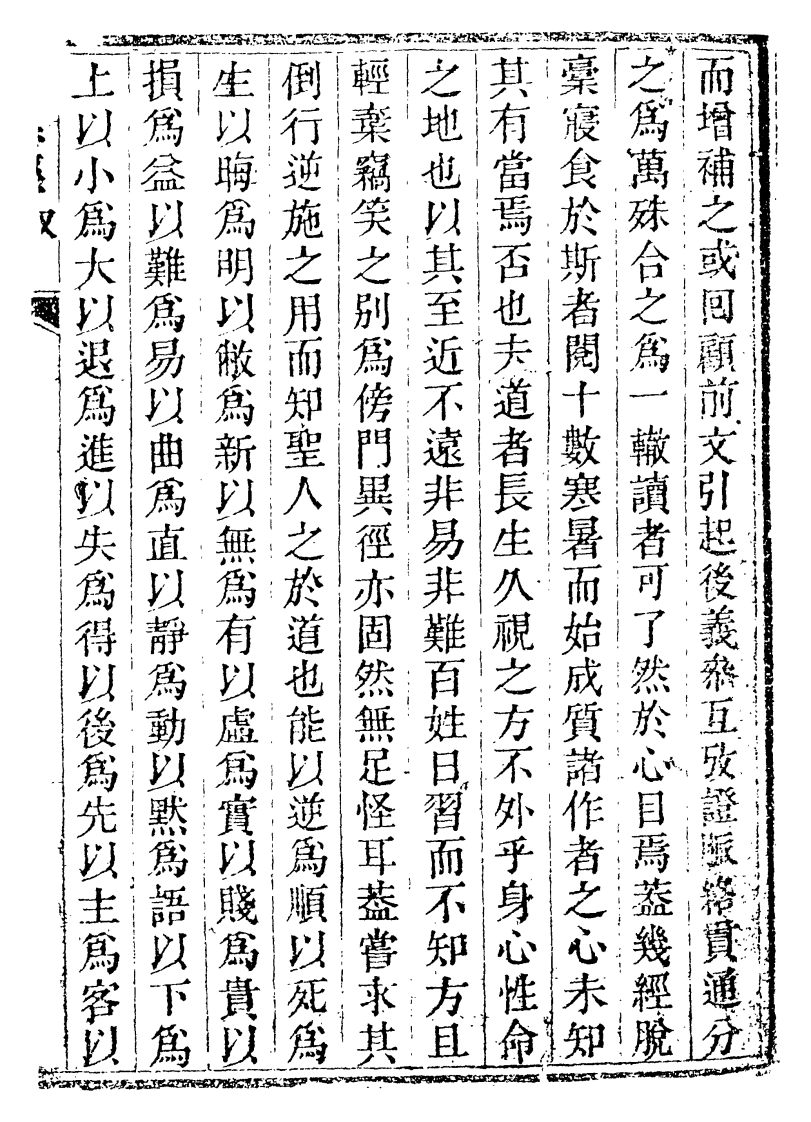 而增補之或回顧前文引起後義叅互攷證脈絡貫通分
之爲萬殊合之爲一轍讀者可了然於心目焉葢幾經脫
稾寢食於斯者閱十數寒暑而始成質諸作者之心未知
其有當焉否也夫道者長生久視之方不外乎身心性命
之地也以其至近不遠非易非難百姓日習而不知方且
輕棄竊笑之別爲傍門異徑亦固然無足怪耳葢嘗求其
倒行逆施之用而知聖人之於道也能以逆爲順以死爲
生以晦爲明以敝爲新以無爲有以虛爲實以賤爲貴以
損爲益以難爲易以曲爲直以靜爲動以默爲語以下爲
上以小爲大以退爲進以失爲得以後爲先以主爲客以